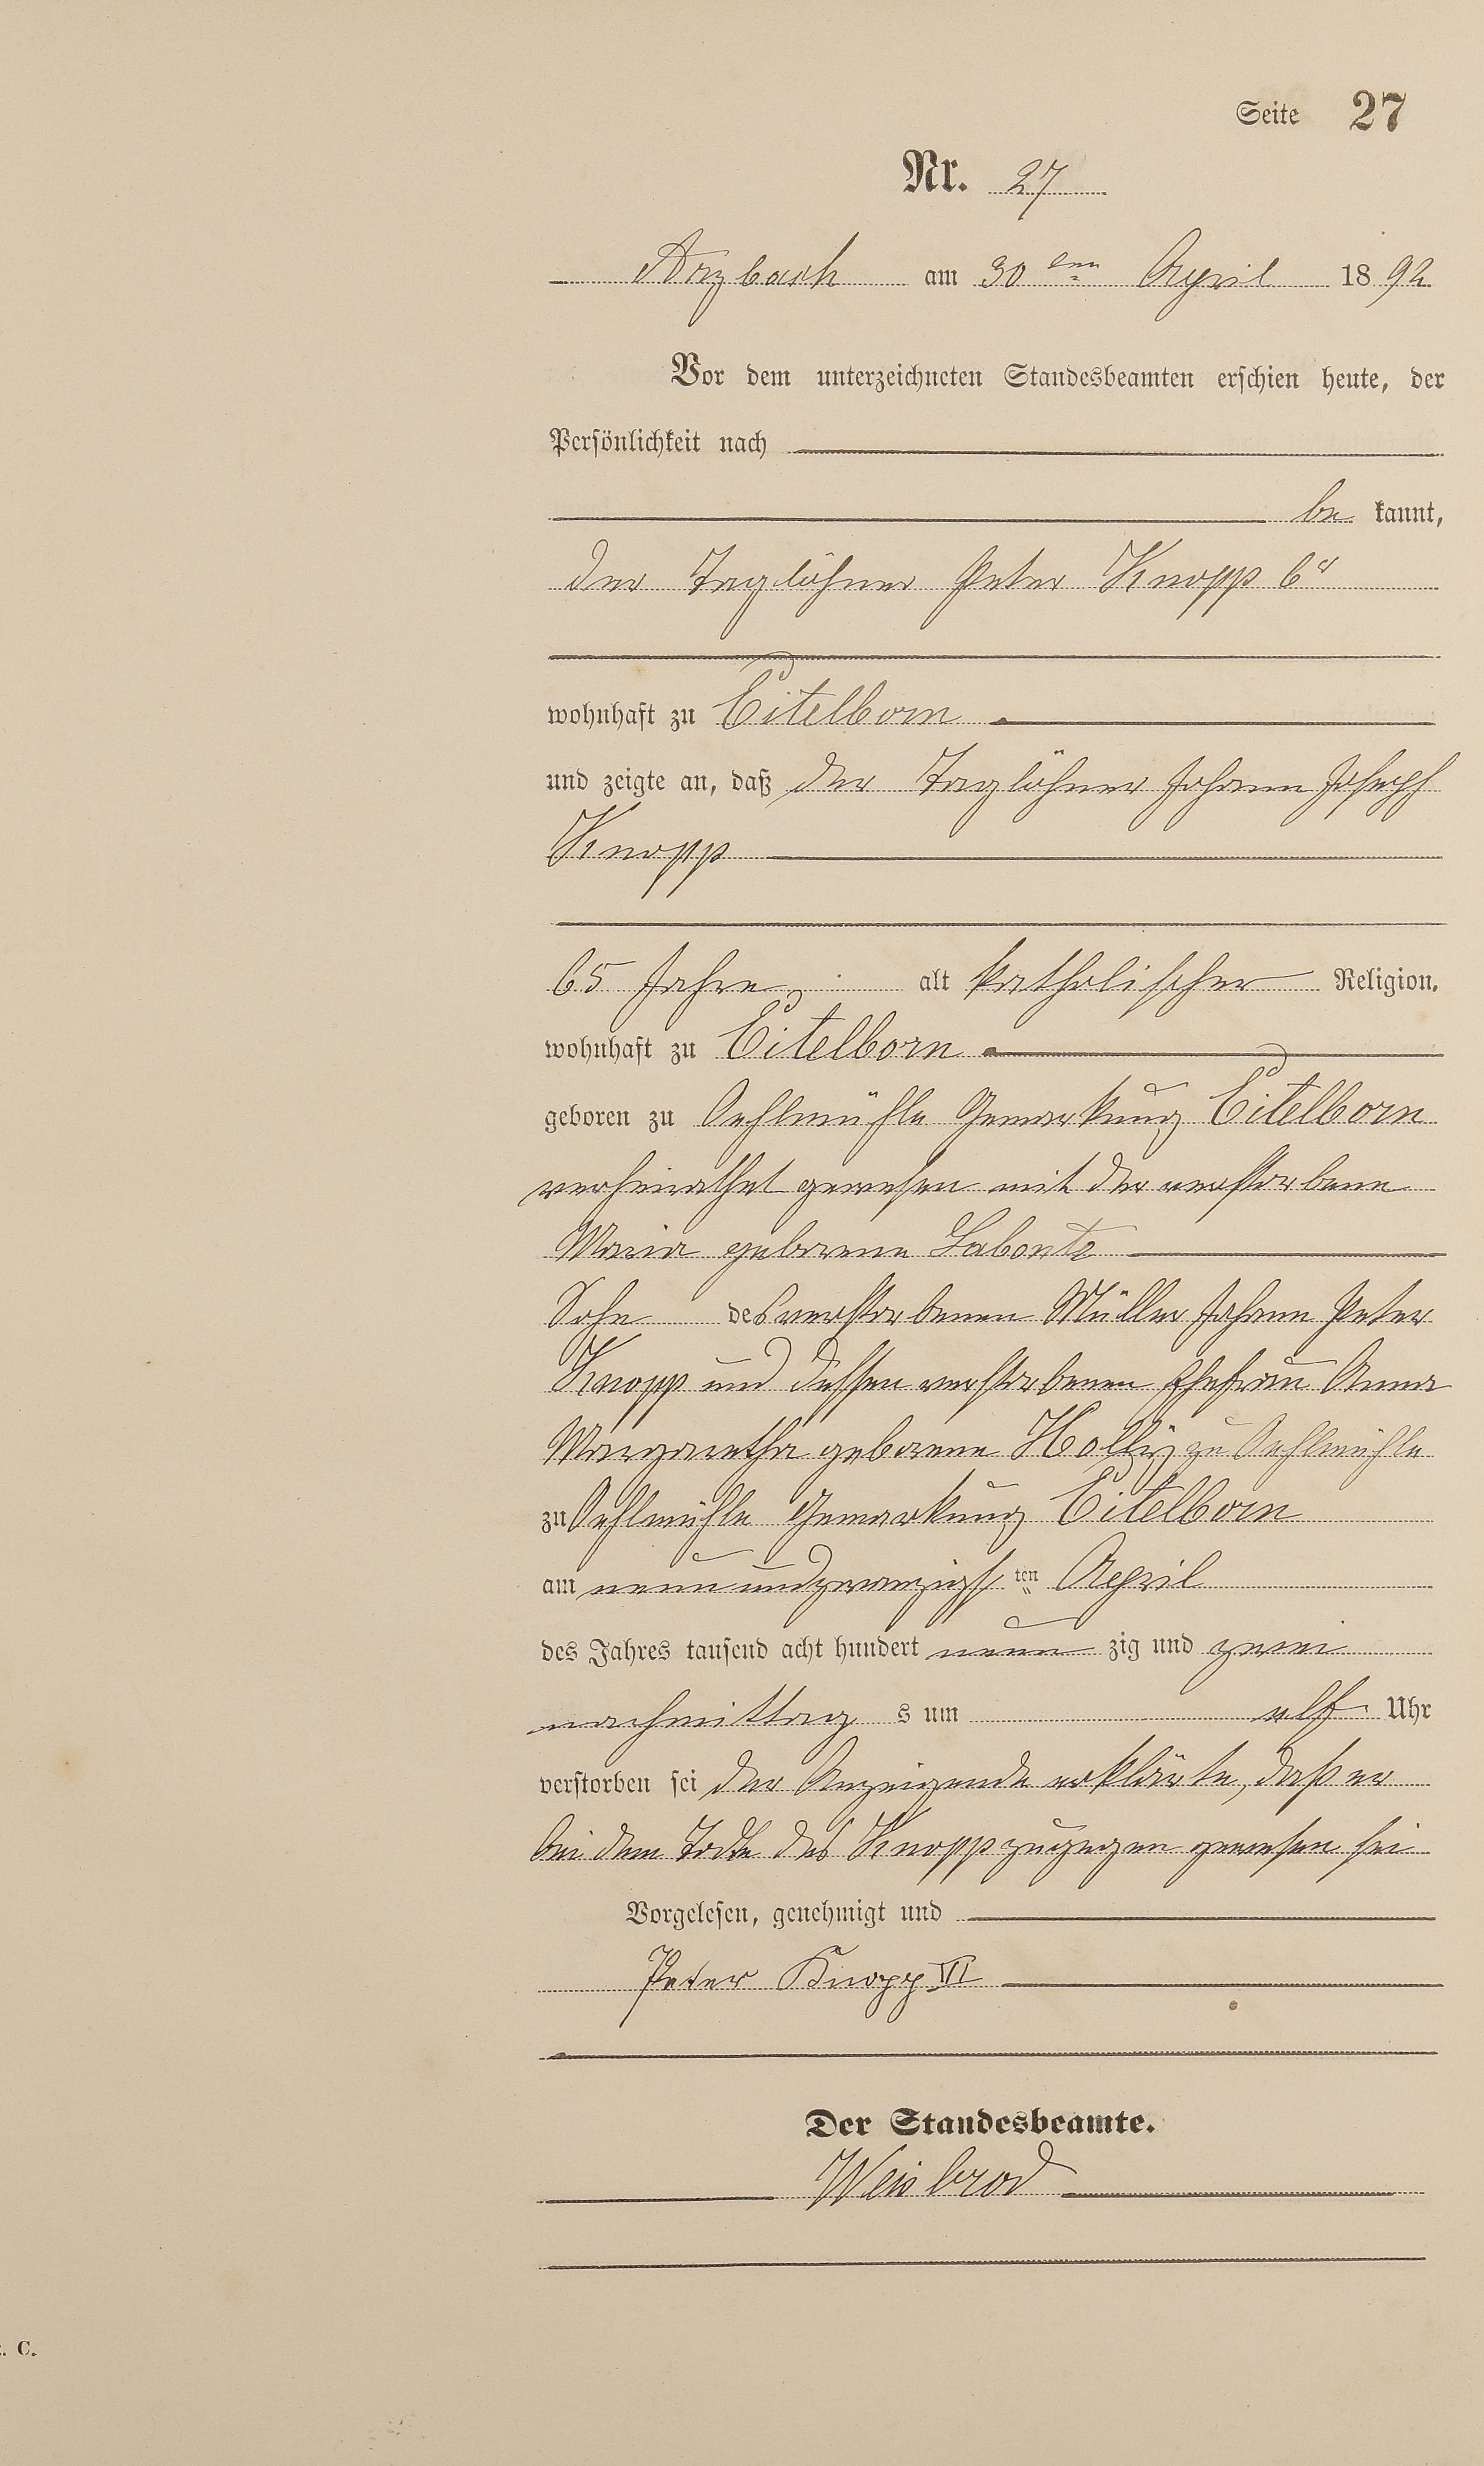 Seite 27
Nr. 27
Arzbach am 30ten April 1892
Vor dem unterzeichneten Standesbeamten erschien heute, der
Persönlichkeit nach
be kannt,
der Taglöhner Peter Knopp 6r
wohnhaft zu Eitelborn
und zeigte an, daß der Taglöhner Johann Joseph
Knopp
65 Jahre alt katholischer Religion,
wohnhaft zu Eitelborn
geboren zu Oehlmühle Gemarkung Eitelborn
verheirathet gewesen mit der verstorbene
Maria geborene Labonte
Sohn des verstorbenen Müller Johann Peter
Knopp und dessen verstorbenen Ehefrau Anna
Margaretha geborene Holly zu Oehlmühle
zu Oehlmühle Gemarkung Eitelborn
am neunundzwanzigsten April
des Jahres tausend acht hundert neun zig und zwei
nachmittag s um elf Uhr
verstorben sei der Anzeigende erklärte, daß er
bei dem Tode des Knopp zugegen gewesen sei
Vorgelesen, genehmigt und
Peter Knopp VI
Der Standesbeamte.
Weisbrod
. C.